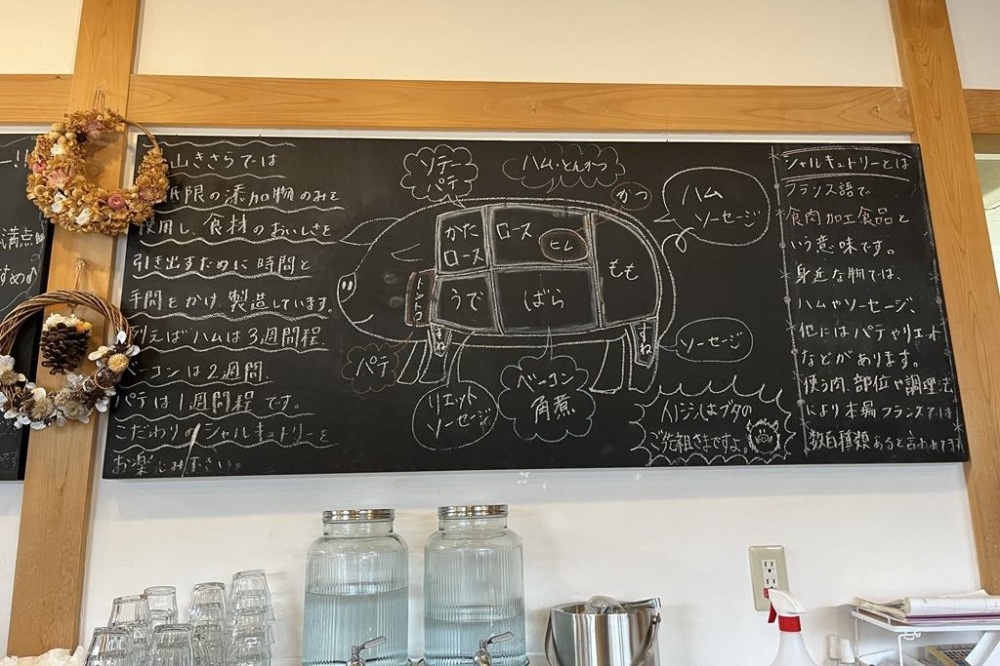 ー!!
满点
すめ♪
山きさらでは
低限の添加物のみを
使用し、食材のおいしさを
引き出すために時間と
手間をかけ、製造しています。
例えばハムは3週間程、
ベーコンは2週間、
パテは1週間程です。
こだわりのシャルキュトリーを
お楽しみ下さい。
ソテー
パテ
ハム・とんかつ
かつ
ハム
ソーセージ
かた
ロース
ロース
ヒレ
もも
トントロ
うで
ばら
すね
すね
パテ
リエット
ソーセージ
ベーコン
角煮
ソーセージ
イノシシはブタの
ご先祖さまですよ。
シャルキュトリーとは
フランス語で
食肉加工食品と
いう意味です。
身近な物では、
ハムやソーセージ、
他にはパテやリエット
などがあります。
使う肉、部位や調理法
により本場フランスでは
数百種類あると言われてます